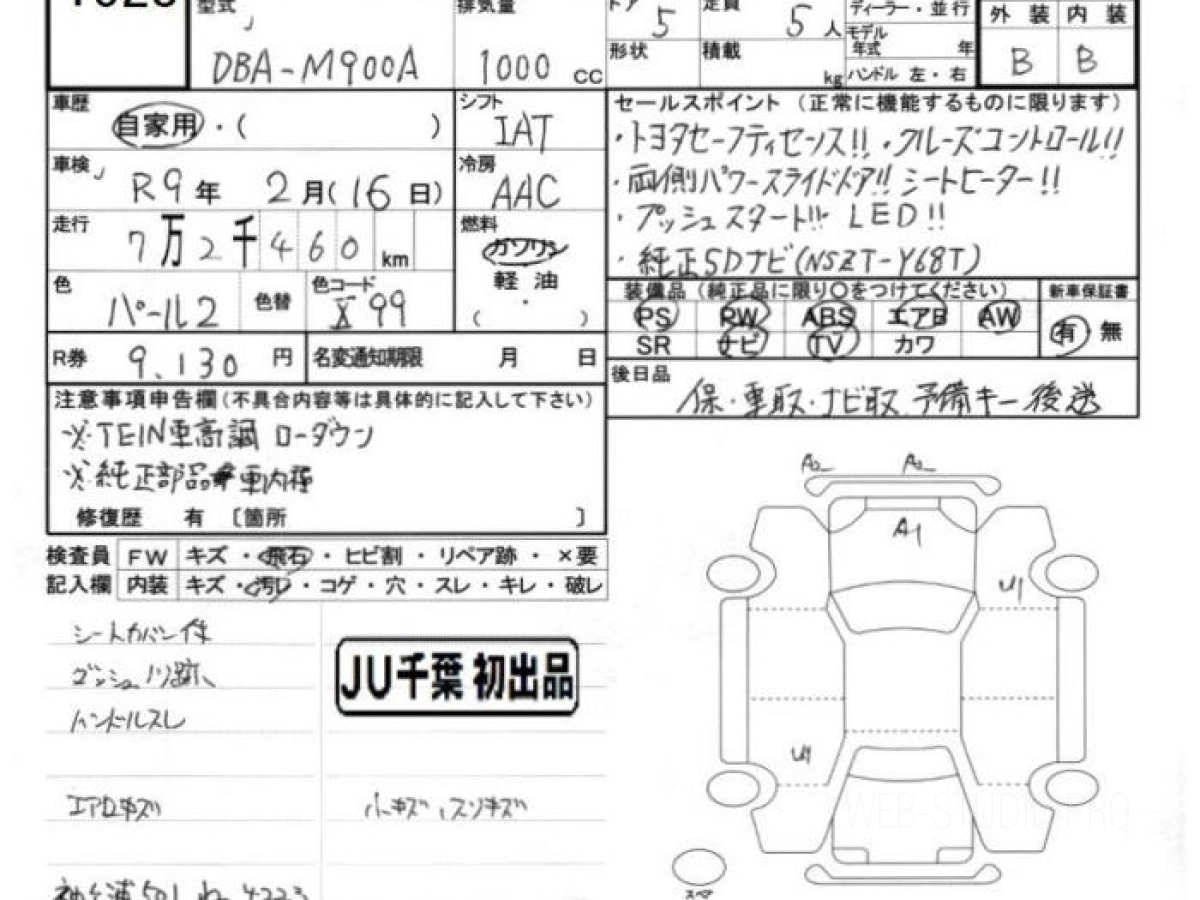 型式 排気量 ドア 5 定員 5 人 ディーラー・並行 外装 内装
DBA-M900A 1000 cc 形状 積載 kg モデル年式 年 ハンドル 左・右 B B
車歴 自家用・( ) シフト IAT セールスポイント (正常に機能するものに限ります)
・トヨタセーフティセンス!! ・クルーズコントロール!!
車検 R9年 2月(16日) 冷房 AAC ・両側パワースライドドア!! シートヒーター!!
走行 7万2千460km 燃料 ガソリン ・プッシュスタート!! LED!!
軽油 ・純正SDナビ(NSZT-Y68T)
・
( )
色 パール2 色替 色コード X99
装備品 (純正品に限り○をつけてください) 新車保証書
PS PW ABS エアB AW 有 無
SR ナビ TV カワ
R券 9,130 円 名変通知期限 月 日
後日品 保・車取・ナビ取 予備キー 後送
注意事項申告欄(不具合内容等は具体的に記入して下さい)
※TEIN車高調 ローダウン
※純正部品 車内積
修復歴 有 〔箇所 〕
検査員 FW キズ・飛石・ヒビ割・リペア跡・×要
記入欄 内装 キズ・汚レ・コゲ・穴・スレ・キレ・破レ
シートカバー付
ダッシュノリ跡
ハンドルスレ
JU千葉 初出品
エアロキズ 小キズ スリキズ
A2 A2
A1
U1
U1
スペア
WEB-STUDIO.PRO